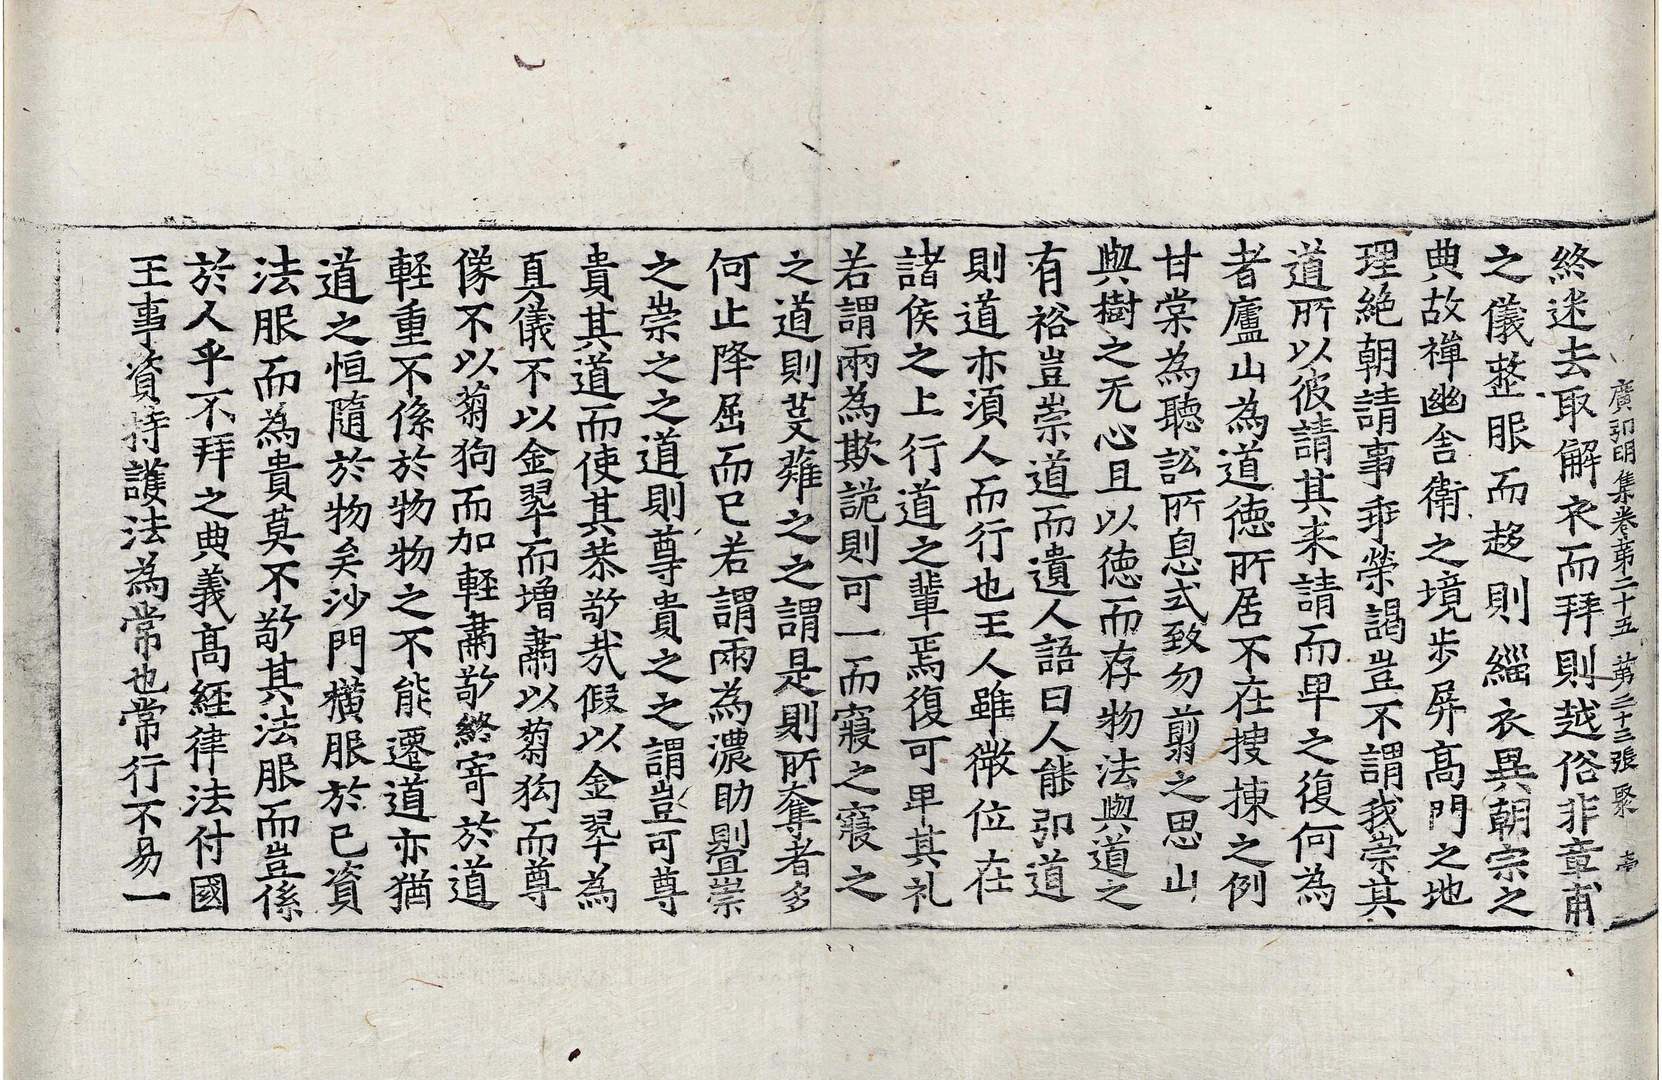 廣弘明集卷第二十五 第二十三張 聚
終迷去取解衣而拜則越俗非章甫
之儀整服而趍則緇衣異朝宗之
典故禪幽舍衛之境步屏高門之地
理絕朝請事乖榮謁豈不謂我崇其
道所以彼請其来請而卑之復何為
者廬山為道德所居不在搜揀之例
甘棠為聽訟所息式致勿翦之思山
與樹之无心且以德而存物法與道之
有裕豈崇道而遺人語曰人能弘道
則道亦須人而行也王人雖微位在
諸侯之上行道之輩焉復可卑其礼
若謂兩為欺詭則可一而寢之寢之
之道則芟薙之之謂是則所奪者多
何止降屈而已若謂兩為濃助則疊崇
之崇之之道則尊貴之之謂豈可尊
貴其道而使其恭敬哉假以金翆為
真儀不以金翆而增肅以蒭狗而尊
像不以蒭狗而加輕肅敬終寄於道
輕重不係於物物之不能遷道亦猶
道之恒隨於物矣沙門橫服於已資
法服而為貴莫不敬其法服而豈係
於人乎不拜之典義高經律法付國
王事資持護法為常也常行不易一